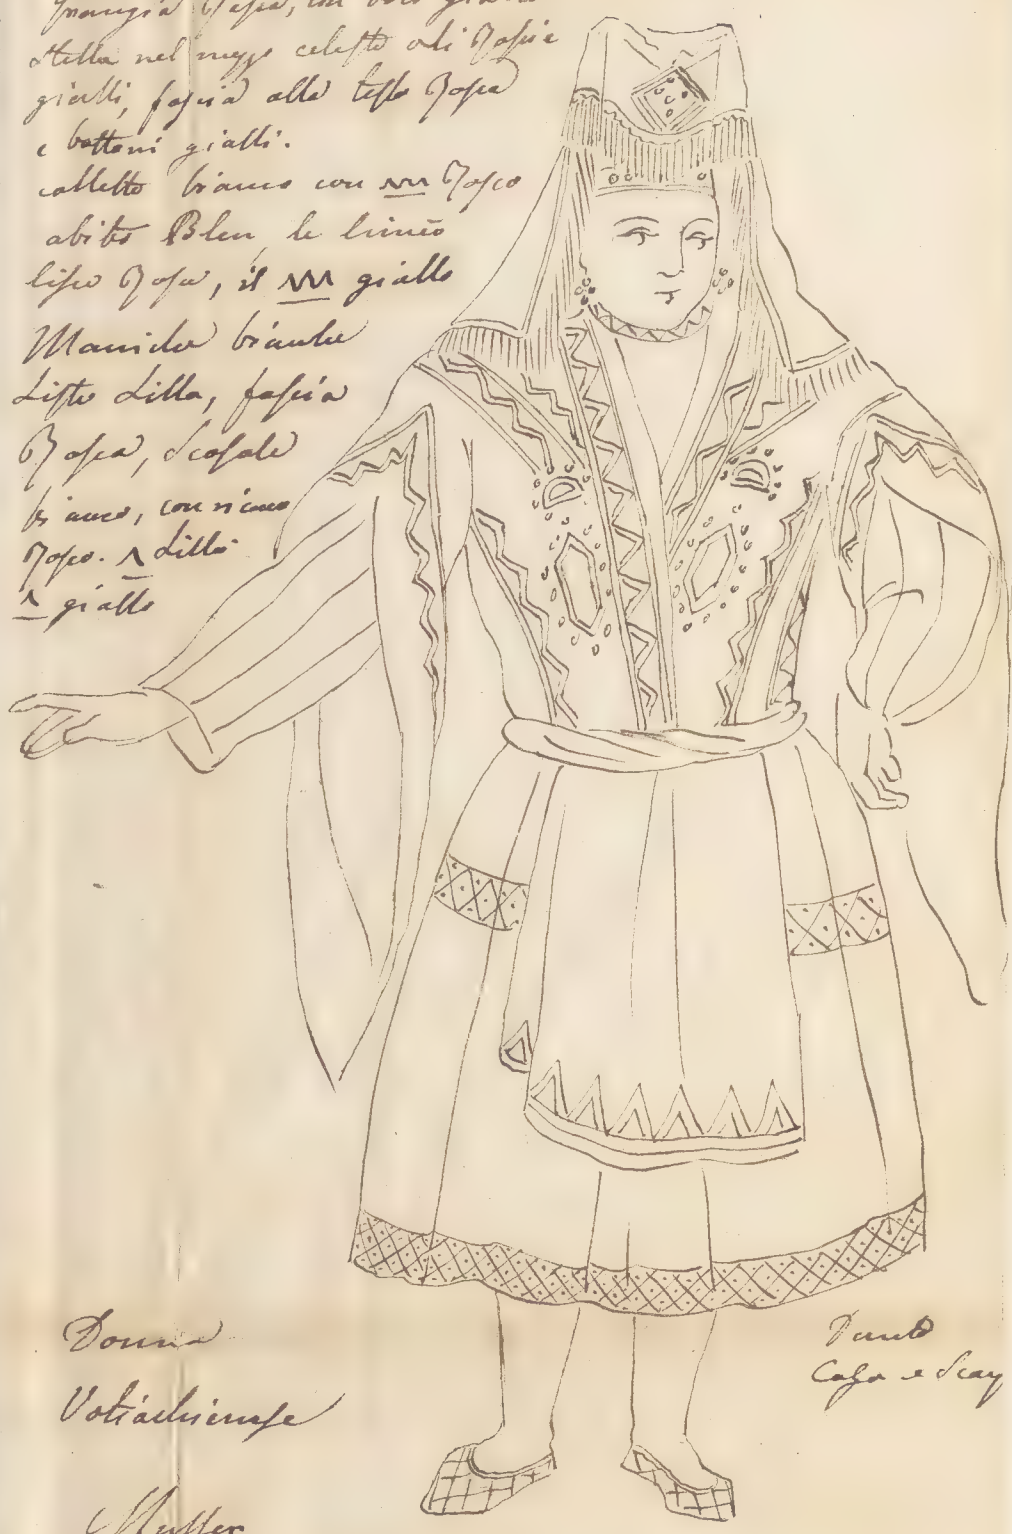 frangia Rossa, con
stella nel mezzo celeste ali Rossi e
gialli, fascia alla testa Rossa
e bottoni gialli.
colletto bianco con Rosso
abito Bleu, le linee
liscie Rosse, il giallo
Maniche bianche
Liste Lilla, fascia
Rossa, Scossale
bianco, con ricamo
Rosso. Lilla
giallo
Donna
Votiachiense
Muller
Calza e Scar